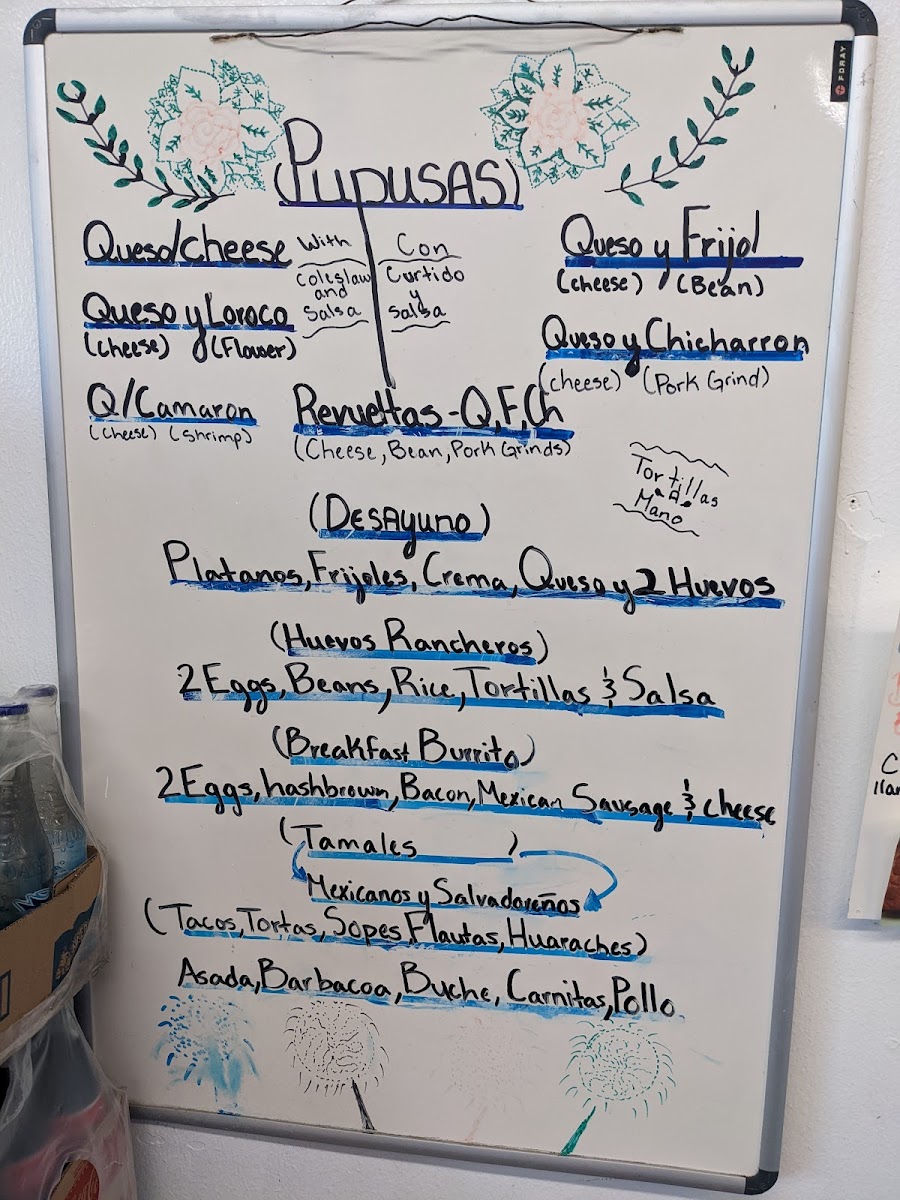 FORAY
(Pupusas)
Queso/cheese
With
Coleslaw
and
Salsa
Con
Curtido
y
Salsa
Queso y Frijol
(cheese) (Bean)
Queso y Loroco
(cheese) (Flower)
Queso y Chicharron
(cheese) (Pork Grind)
Q/Camaron
(cheese) (shrimp)
Revueltas-Q,F,Ch
(Cheese, Bean, Pork Grinds)
Tortillas
A
Mano
(Desayuno)
Platanos, Frijoles, Crema, Queso y 2 Huevos
(Huevos Rancheros)
2 Eggs, Beans, Rice, Tortillas & Salsa
(Breakfast Burrito)
2 Eggs, hashbrown, Bacon, Mexican Sausage & cheese
(Tamales )
Mexicanos y Salvadoreños
(Tacos, Tortas, Sopes, Flautas, Huaraches)
Asada, Barbacoa, Buche, Carnitas, Pollo